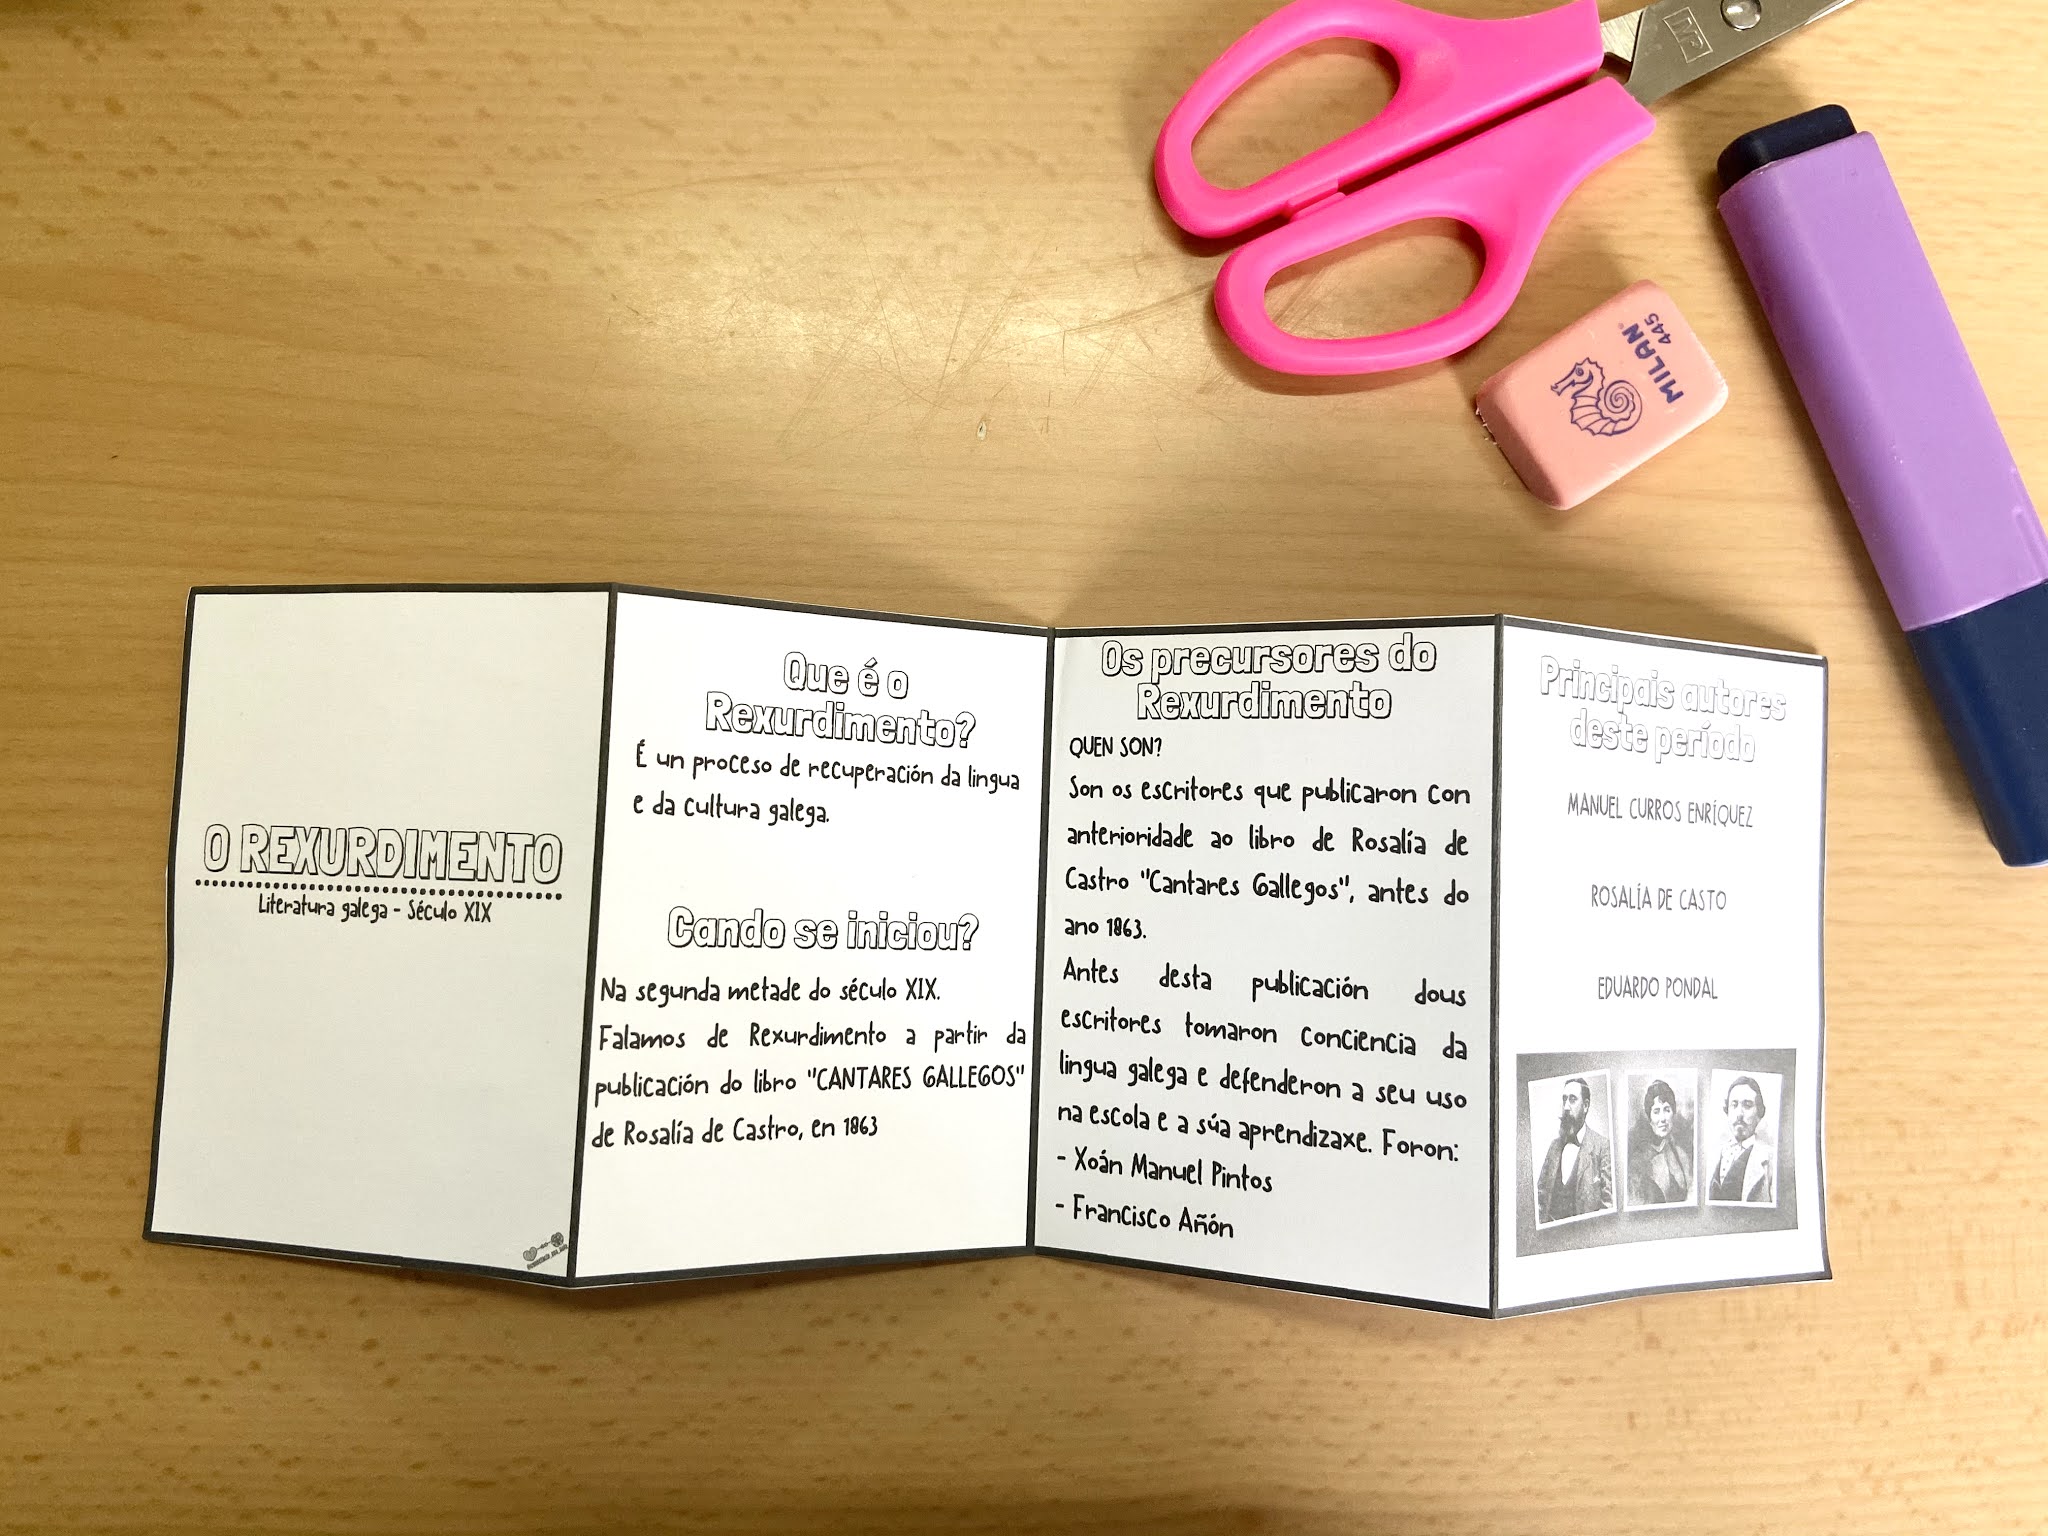 O REXURDIMENTO
Literatura galega - Século XIX
Que é o
Rexurdimento?
É un proceso de recuperación da lingua
e da cultura galega.
Cando se iniciou?
Na segunda metade do século XIX.
Falamos de Rexurdimento a partir da
publicación do libro "CANTARES GALLEGOS"
de Rosalía de Castro, en 1863
Os precursores do
Rexurdimento
QUEN SON?
Son os escritores que publicaron con
anterioridade ao libro de Rosalía de
Castro "Cantares Gallegos", antes do
ano 1863.
Antes desta publicación dous
escritores tomaron conciencia da
lingua galega e defenderon a seu uso
na escola e a súa aprendizaxe. Foron:
- Xoán Manuel Pintos
- Francisco Añón
Principais autores
deste período
MANUEL CURROS ENRÍQUEZ
ROSALÍA DE CASTO
EDUARDO PONDAL
MILAN®
445